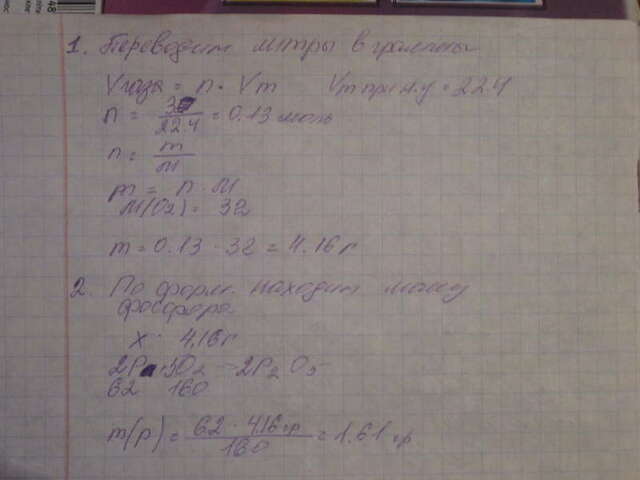 1. Переводим литры в граммы
Vгаза = n · Vm Vm при н.у = 22.4
n = 3 / 22.4 = 0.13 моль
n = m / M
m = n · M
M(O2) = 32
m = 0.13 · 32 = 4.16 г
2. По форм. находим массу
фосфора
x 4,16 г
2P 3O2 → 2P2O5
62 160
m(p) = 62 · 4.16 гр / 160 = 1.61 гр